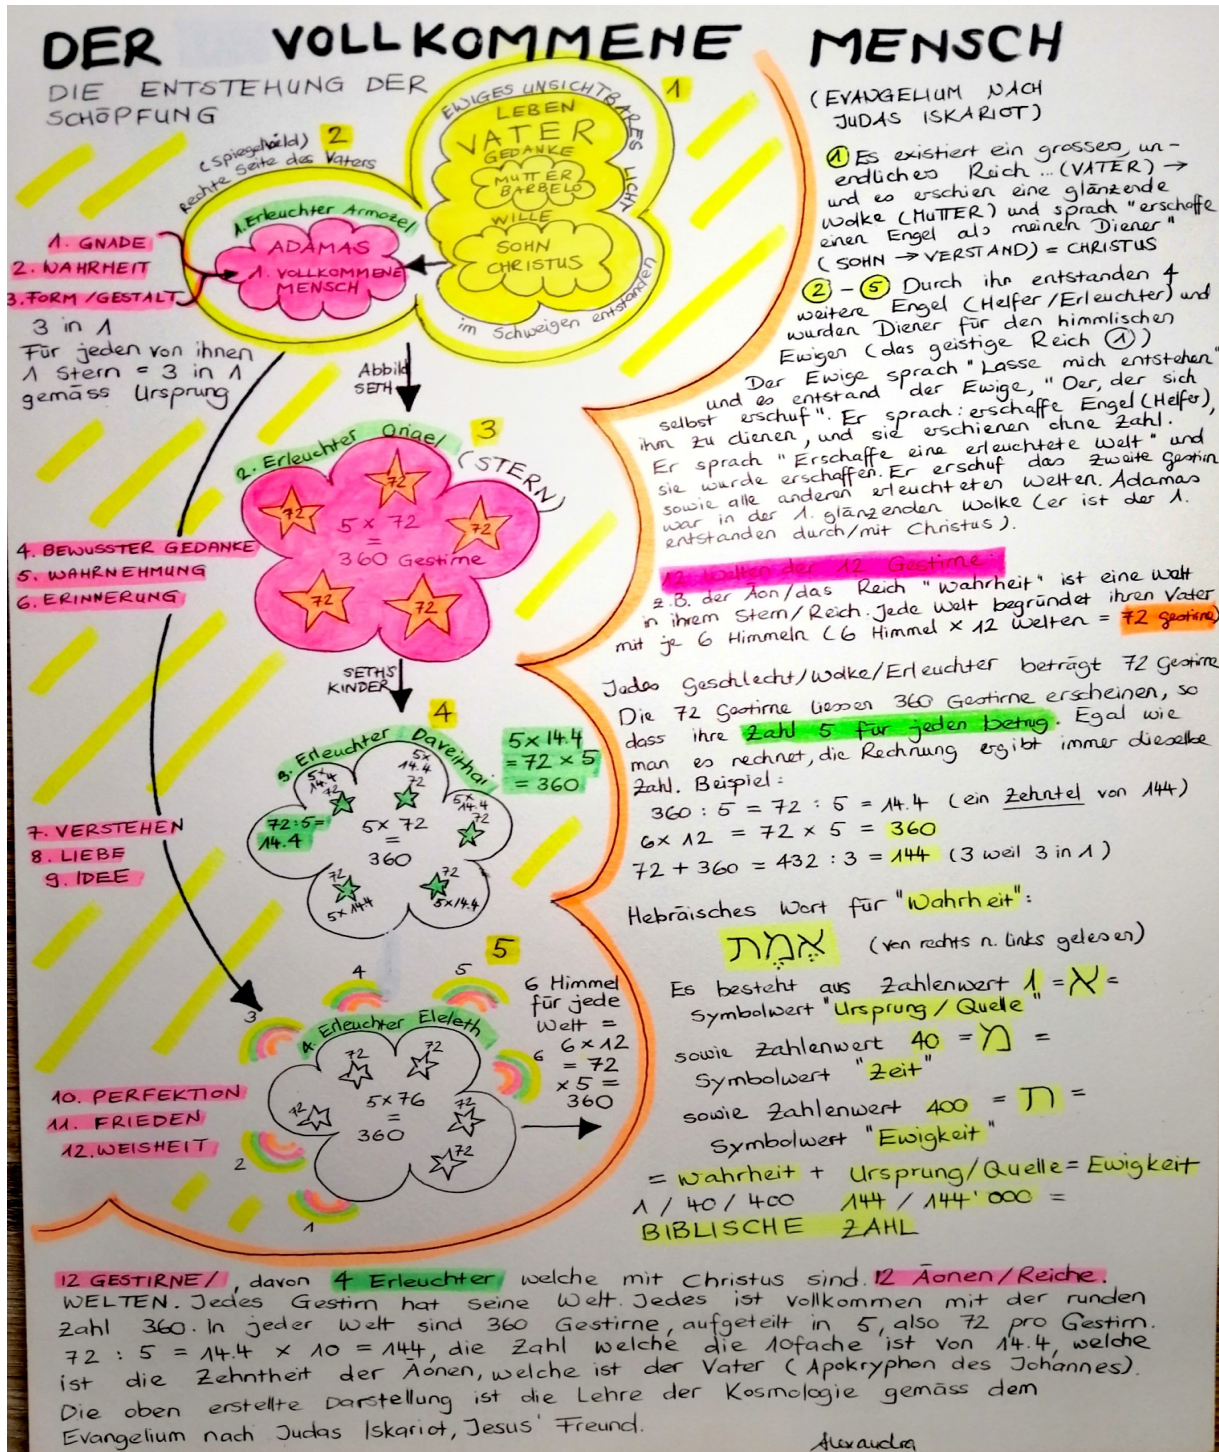 DER VOLLKOMMENE MENSCH
DIE ENTSTEHUNG DER
SCHÖPFUNG
1
EWIGES UNSICHTBARES LICHT
LEBEN
VATER
GEDANKE
MUTTER
BARBELO
WILLE
SOHN
CHRISTUS
im Schweigen entstanden
2
(Spiegelbild)
Rechte Seite des Vaters
1. Erleuchter Armozel
ADAMAS
1. VOLLKOMMENE
MENSCH
1. GNADE
2. WAHRHEIT
3. FORM/GESTALT
3 in 1
Für jeden von ihnen
1 Stern = 3 in 1
gemäss Ursprung
Abbild
SETH
3
2. Erleuchter Oriael
(STERN)
72
72
72
5 x 72
=
360 Gestirne
72
72
4. BEWUSSTER GEDANKE
5. WAHRNEHMUNG
6. ERINNERUNG
SETHS
KINDER
4
3. Erleuchter Daveithai
5x14.4
= 72 x 5
= 360
5x
14.4
72
5x
14.4
72
5x
14.4
72
72:5=
14.4
5x72
=
360
72
5x14.4
72
5x14.4
7. VERSTEHEN
8. LIEBE
9. IDEE
5
3
4
5
6 Himmel
für jede
Welt =
6x12
= 72
x 5 =
360
6
4. Erleuchter Eleleth
72
72
72
72
72
5x76
=
360
10. PERFEKTION
11. FRIEDEN
12. WEISHEIT
2
1
(EVANGELIUM NACH
JUDAS ISKARIOT)
1 Es existiert ein grosses, un-
endliches Reich ... (VATER) →
und es erschien eine glänzende
Wolke (MUTTER) und sprach "erschaffe
einen Engel als meinen Diener"
(SOHN → VERSTAND) = CHRISTUS
2 - 5 Durch ihn entstanden 4
weitere Engel (Helfer/Erleuchter) und
wurden Diener für den himmlischen
Ewigen (das geistige Reich 1)
Der Ewige sprach "Lasse mich entstehen"
und es entstand der Ewige, "Der, der sich
selbst erschuf". Er sprach: erschaffe Engel (Helfer),
ihm zu dienen, und sie erschienen ohne Zahl.
Er sprach "Erschaffe eine erleuchtete Welt" und
sie wurde erschaffen. Er erschuf das zweite Gestirn
sowie alle anderen erleuchteten Welten. Adamas
war in der 1. glänzenden Wolke (er ist der 1.
entstanden durch/mit Christus).
12 Welten der 12 Gestirne:
z.B. der Äon/das Reich "Wahrheit" ist eine Welt
in ihrem Stern/Reich. Jede Welt begründet ihren Vater
mit je 6 Himmeln (6 Himmel x 12 Welten = 72 Gestirne)
Jedes Geschlecht/Wolke/Erleuchter beträgt 72 Gestirne
Die 72 Gestirne liessen 360 Gestirne erscheinen, so
dass ihre Zahl 5 für jeden betrug. Egal wie
man es rechnet, die Rechnung ergibt immer dieselbe
Zahl. Beispiel:
360 : 5 = 72 : 5 = 14.4 (ein Zehntel von 144)
6x 12 = 72 x 5 = 360
72 + 360 = 432 : 3 = 144 (3 weil 3 in 1)
Hebräisches Wort für "Wahrheit":
אֱמֶת (von rechts n. links gelesen)
Es besteht aus Zahlenwert 1 = א =
Symbolwert "Ursprung / Quelle"
sowie Zahlenwert 40 = מ =
Symbolwert "Zeit"
sowie Zahlenwert 400 = ת =
Symbolwert "Ewigkeit"
= Wahrheit + Ursprung/Quelle = Ewigkeit
1 / 40 / 400 144 / 144'000 =
BIBLISCHE ZAHL
12 GESTIRNE/, davon 4 Erleuchter welche mit Christus sind. 12 Äonen/Reiche.
WELTEN. Jedes Gestirn hat seine Welt. Jedes ist vollkommen mit der runden
Zahl 360. In jeder Welt sind 360 Gestirne, aufgeteilt in 5, also 72 pro Gestirn.
72 : 5 = 14.4 x 10 = 144, die Zahl welche die 10fache ist von 14.4, welche
ist die Zehntheit der Äonen, welche ist der Vater (Apokryphon des Johannes).
Die oben erstellte Darstellung ist die Lehre der Kosmologie gemäss dem
Evangelium nach Judas Iskariot, Jesus' Freund.
Alexandra